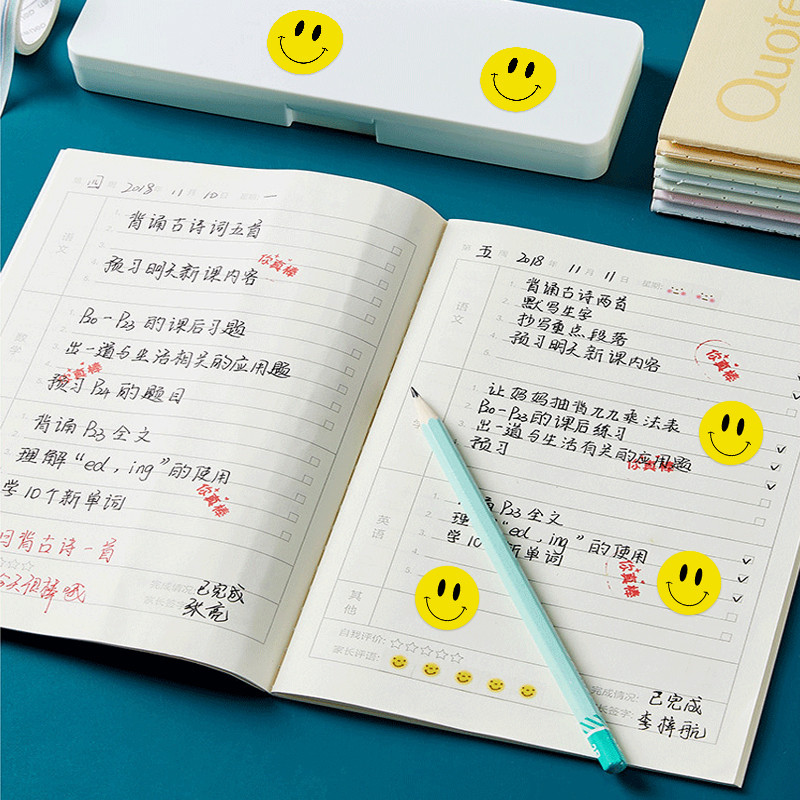 Quote
第 四 周 2018年 11月 10日 星期 一
语文
1.
背诵古诗词五首
2.
3.
4.
预习明天新课内容
你真棒
5.
数学
P20-P23的课后习题
出一道与生活相关的应用题
预习P24的题目
你真棒
背诵P23全文
理解“ed,ing”的使用
学10个新单词
你真棒
日背古诗一首
今天很棒哦
完成情况: 已完成
家长签字: 张亮
第 五 周 2018年 11月 11日 星期:
语文
1.
背诵古诗两首
2.
默写生字
3.
抄写重点段落
4.
预习明天新课内容
5.
你真棒
让妈妈抽背九九乘法表
P20-P23的课后练习
出一道与生活有关的应用题
预习
你真棒
英语
背诵P23全文
理解“ed,ing”的使用
学10个新单词
你真棒
其他
自我评价:
家长评语:
完成情况: 已完成
家长签字: 李梓航